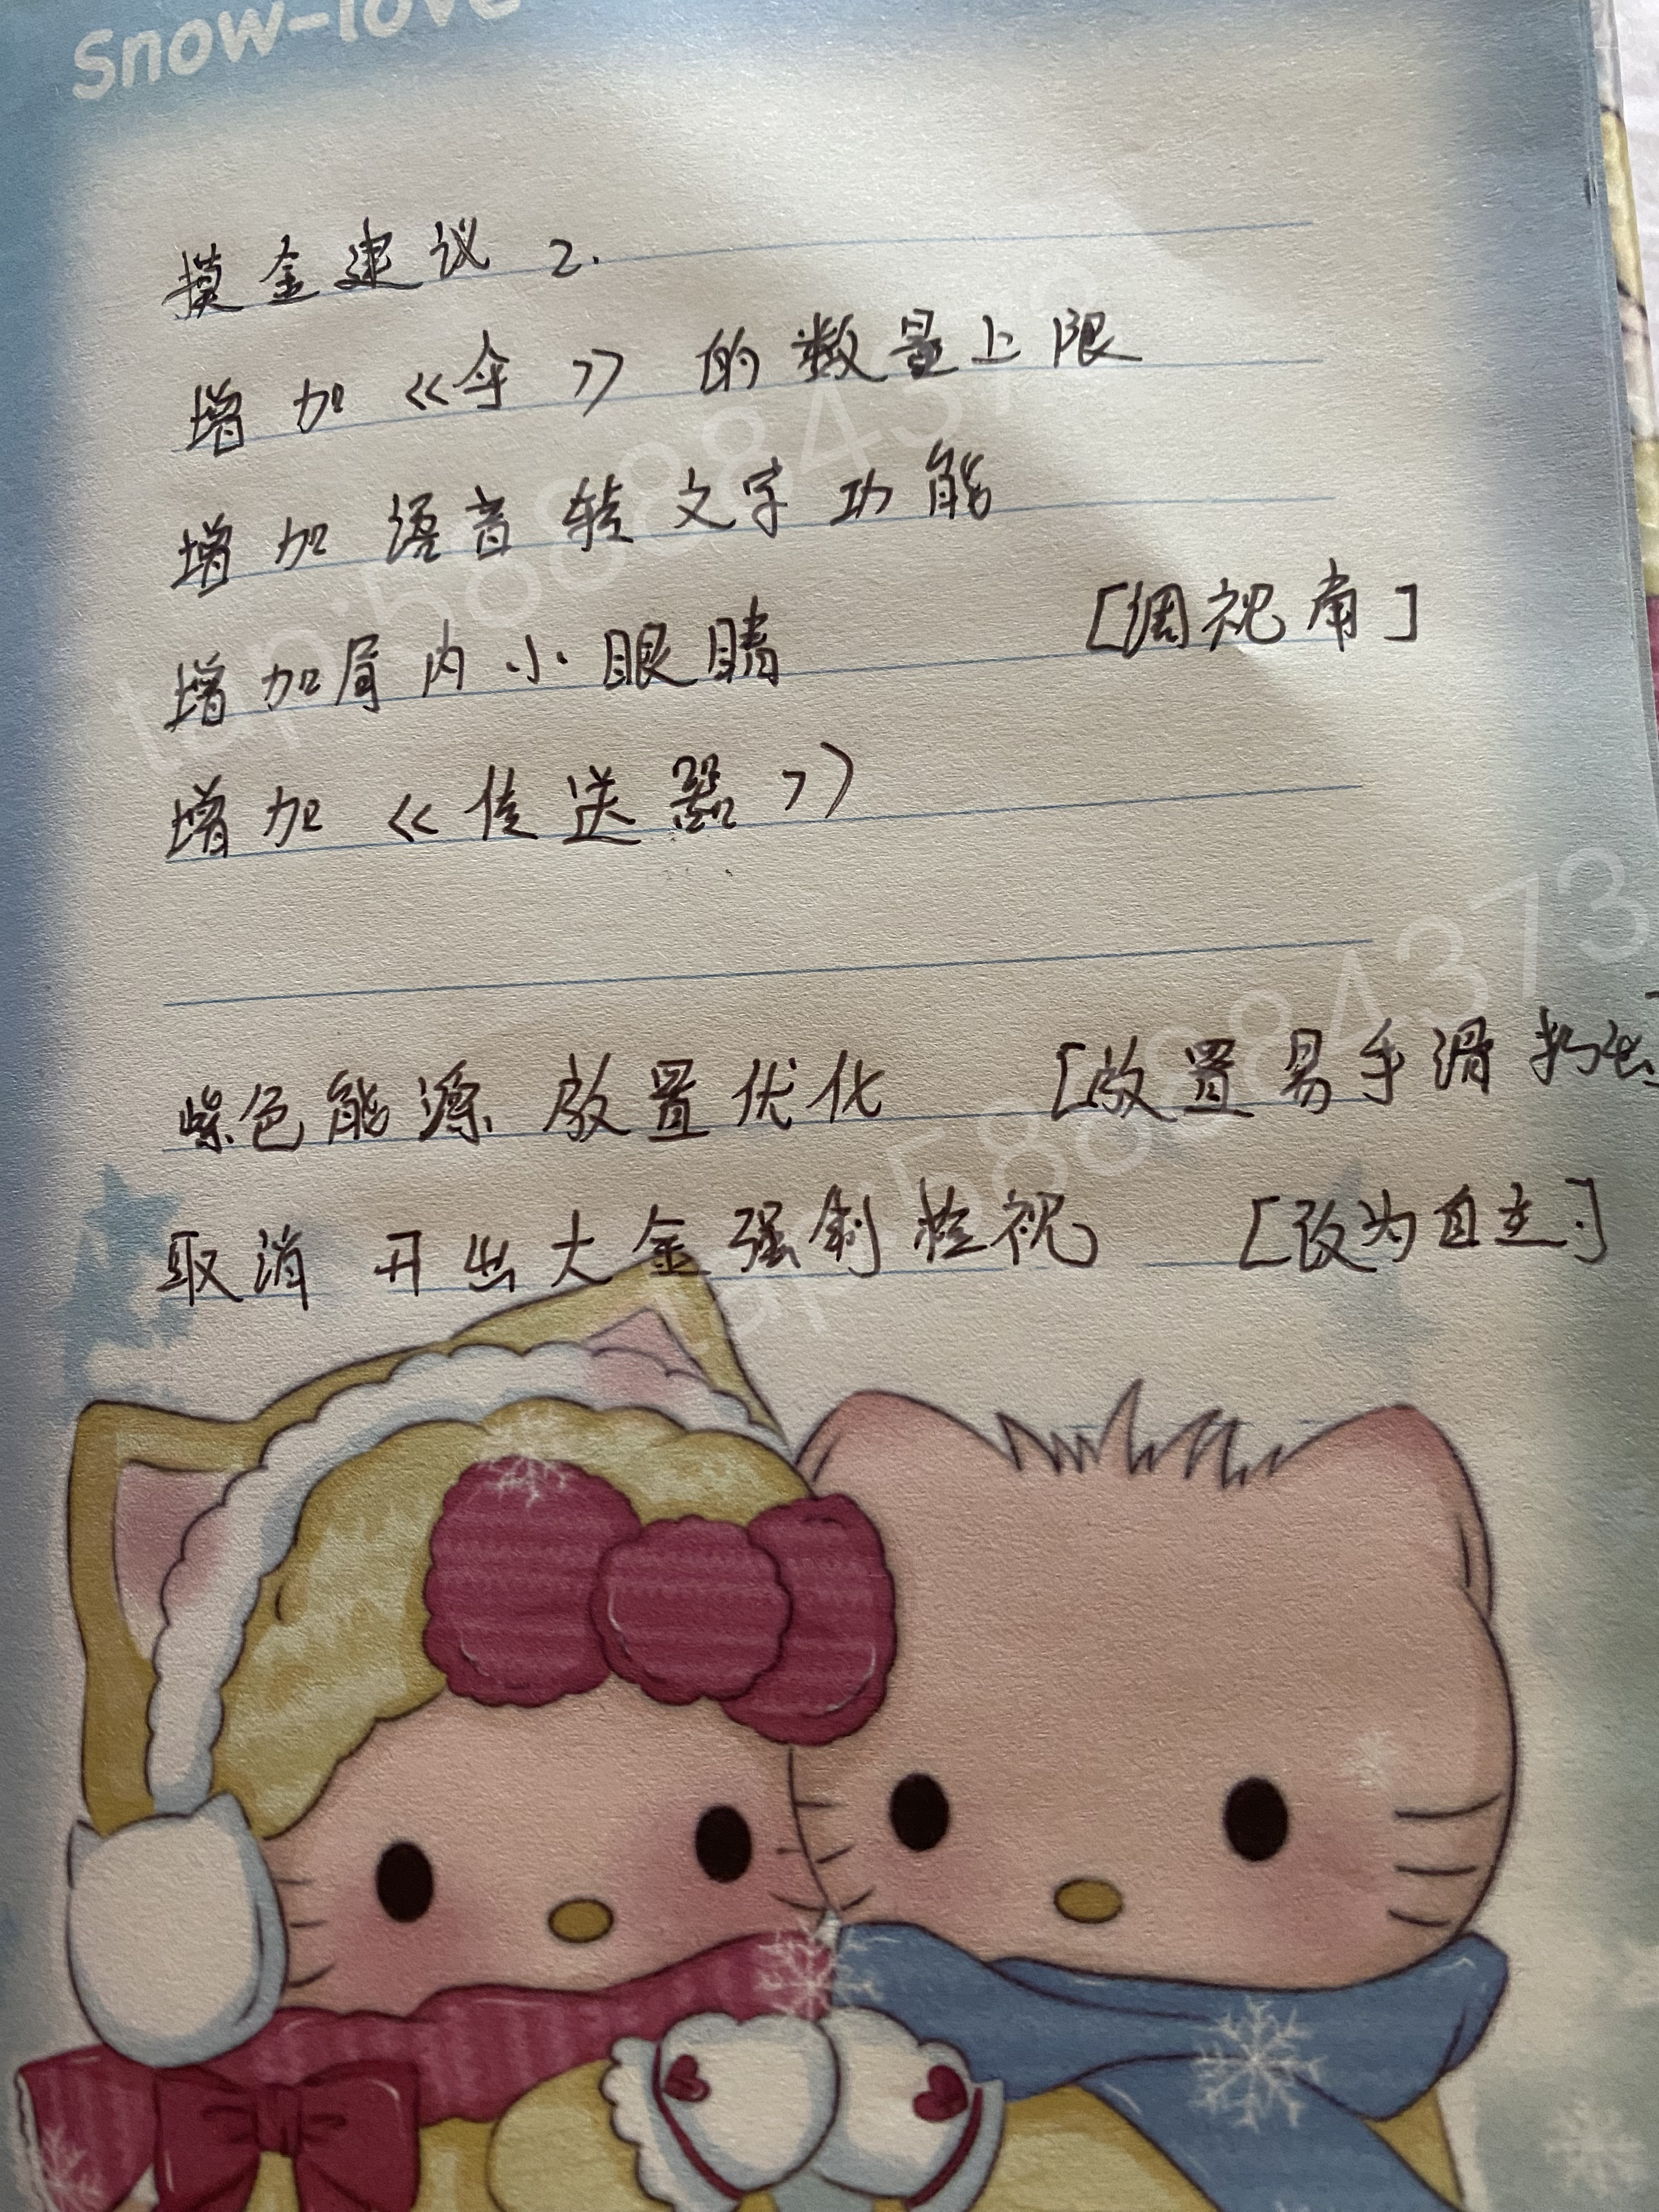 Snow-love
摸金建议 2.
增加《伞》的数量上限
增加语音转文字功能
增加局内小眼睛 [调视角]
增加《传送器》
紫色能源放置优化 [放置易手滑扔出
取消开出大金强制检视 [改为自主]